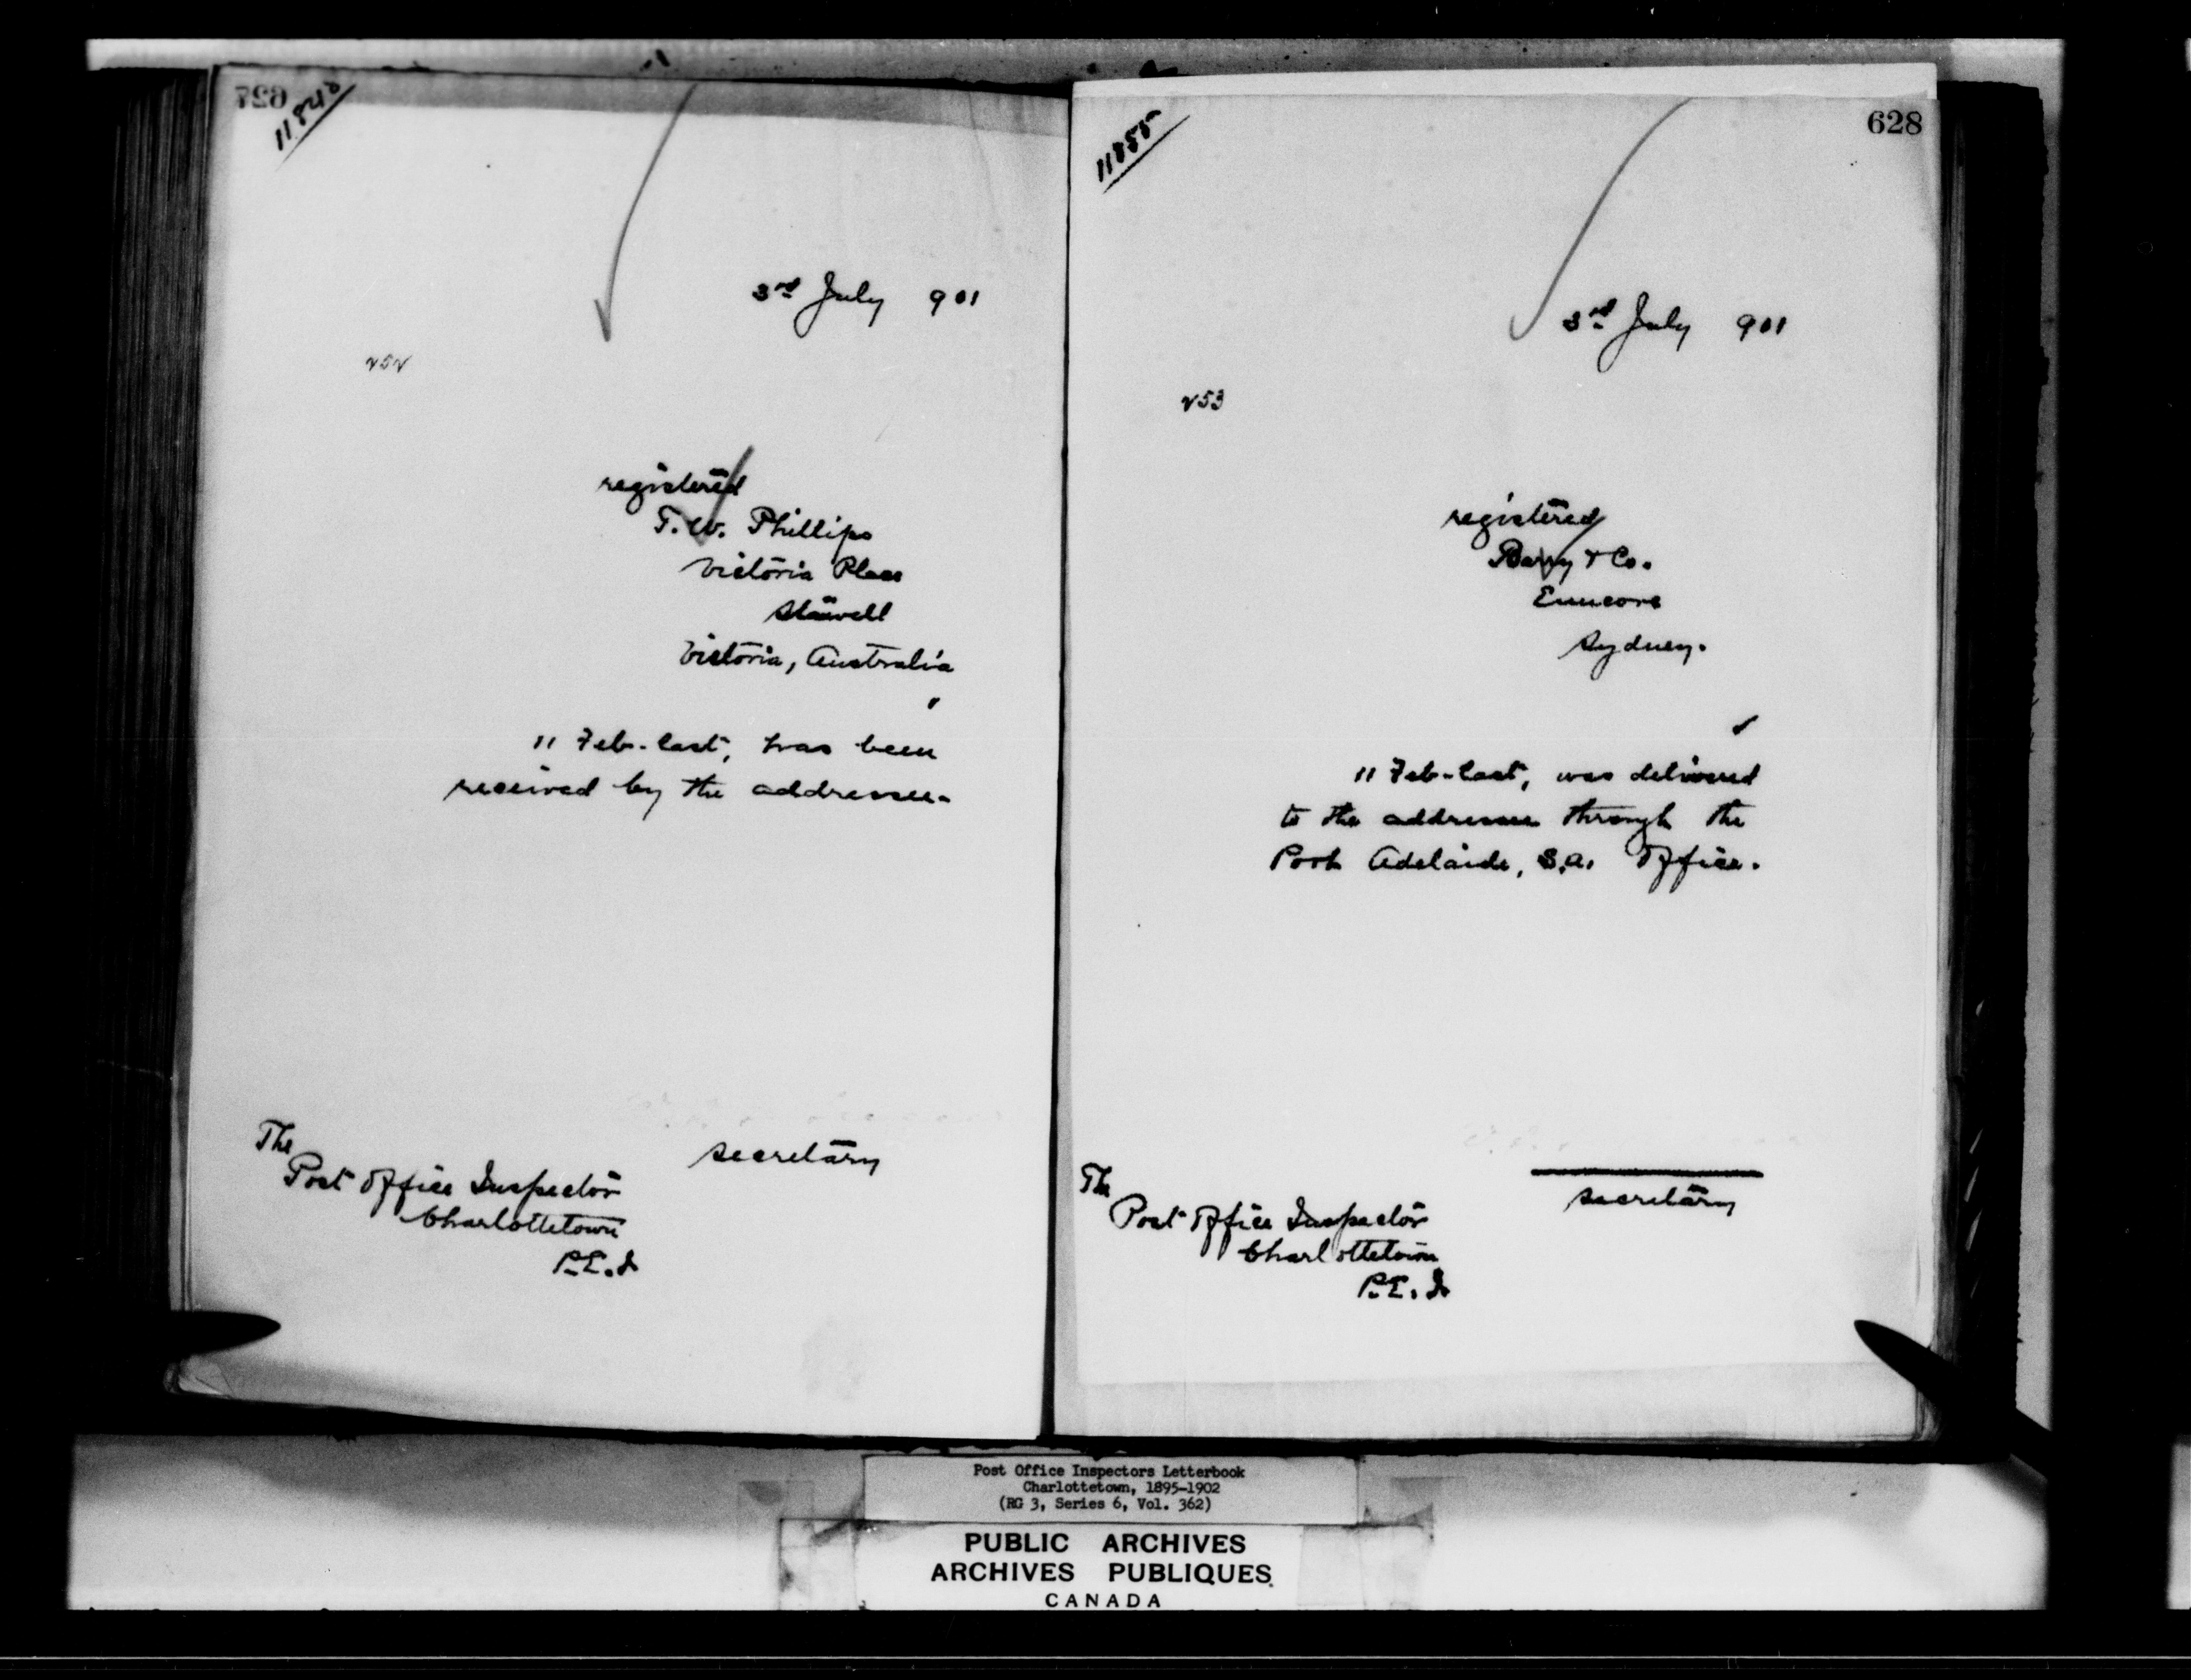 3rd July 901
252
registered
T. W. Phillips
Victoria Place
Stawell
Victoria, Australia
11 Feb. last, has been
received by the addressee.
The
Post Office Inspector
Charlottetown
P.E.I
Secretary
11855
628
3rd July 901
253
registered
Barry & Co.
Enmore
Sydney.
11 Feb. last, was delivered
to the addressee through the
Port Adelaide, S.A. Office.
The
Post Office Inspector
Charlottetown
P.E.I
Secretary
Post Office Inspectors Letterbook
Charlottetown, 1895-1902
(RG 3, Series 6, Vol. 362)
PUBLIC ARCHIVES
ARCHIVES PUBLIQUES
CANADA